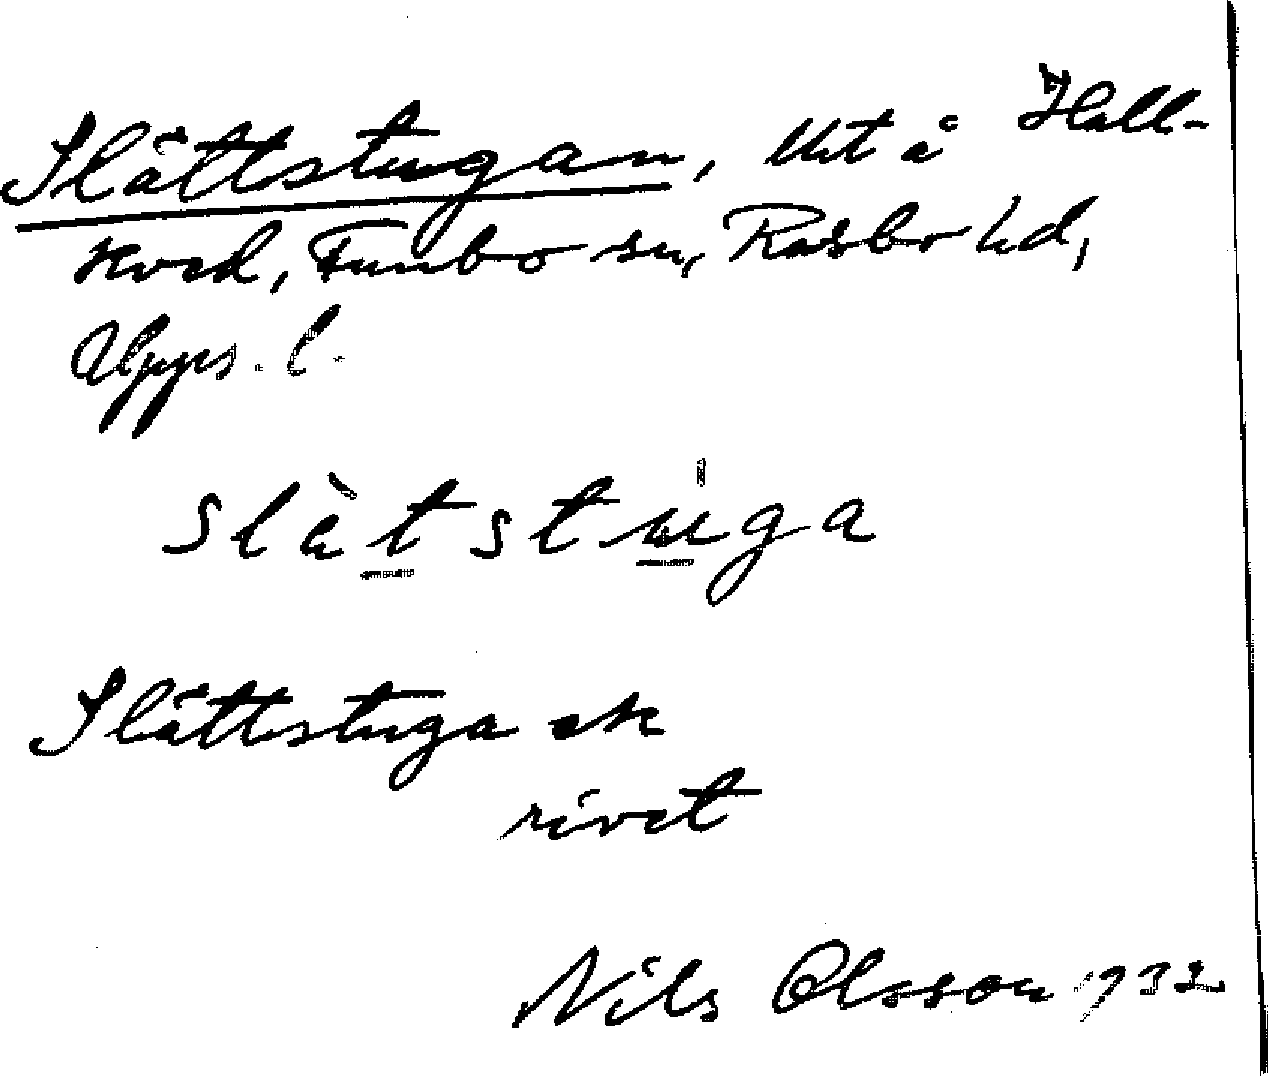 Slättstugan, Utå Hall-
kved, Funbo sn, Rasbo hd,
Upps. l.
slàtstúga
Slättstuga ek
rivet
Nils Olsson 1932